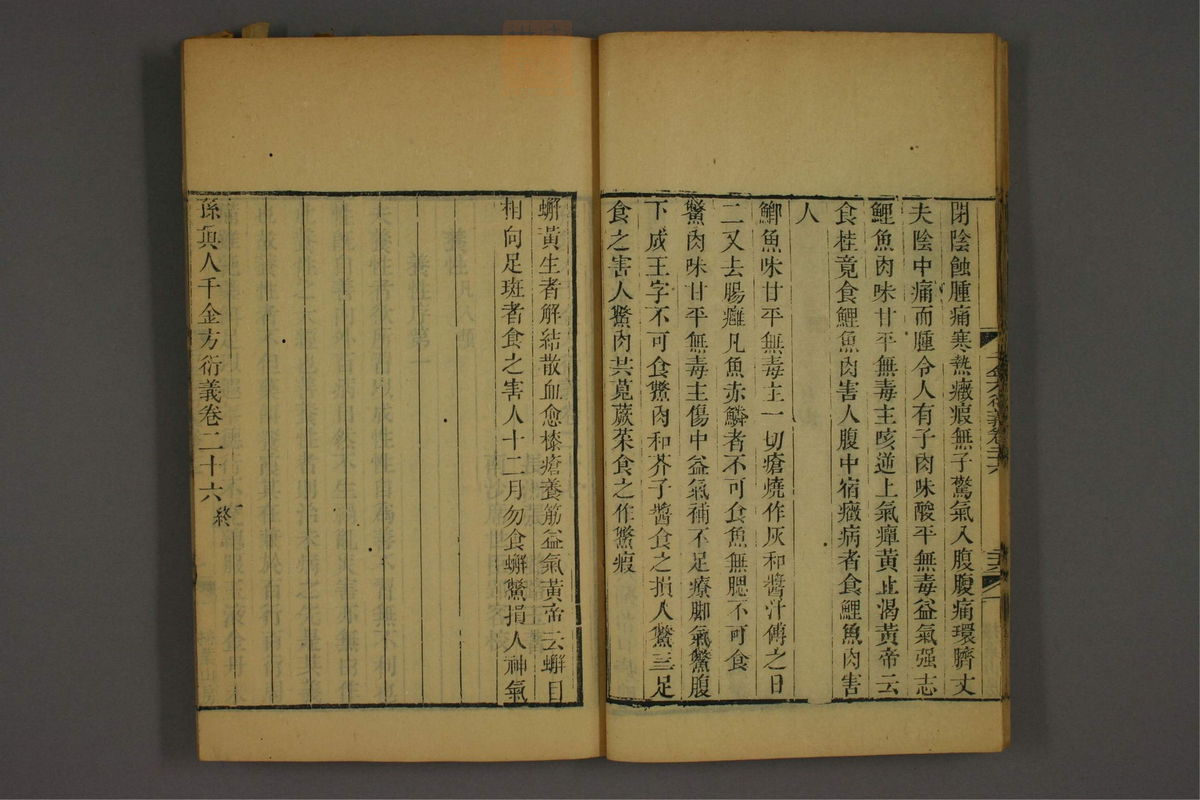 閉陰蝕腫痛寒熱癥瘕無子驚氣入腹腹痛環臍丈
夫陰中痛而腫令人有子肉味酸平無毒益氣强志
鯉魚肉味甘平無毒主咳逆上氣癉黃止渴黃帝云
食桂竟食鯉魚肉害人腹中宿癥病者食鯉魚肉害
人
鯽魚味甘平無毒主一切瘡燒作灰和醬汁傅之日
二又去腸癰凡魚赤鱗者不可食魚無腮不可食
鱉肉味甘平無毒主傷中益氣補不足療脚氣鱉腹
下成王字不可食鱉肉和芥子醬食之損人鱉三足
食之害人鱉肉共莧蕨菜食之作鱉瘕
蠏黃生者解結散血愈㯃瘡養筋益氣黃帝云蠏目
相向足斑者食之害人十二月勿食蠏鱉損人神氣
孫真人千金方衍義卷二十六終
千金方衍義卷二十六